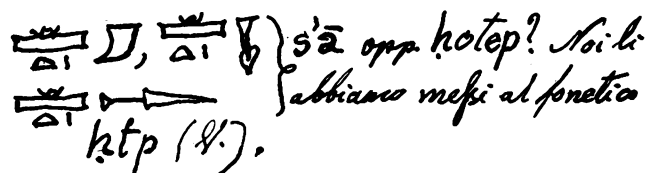 s'ā opp. ḥotep? Noi li
abbiamo messi al fonetico
ḥtp (V.).